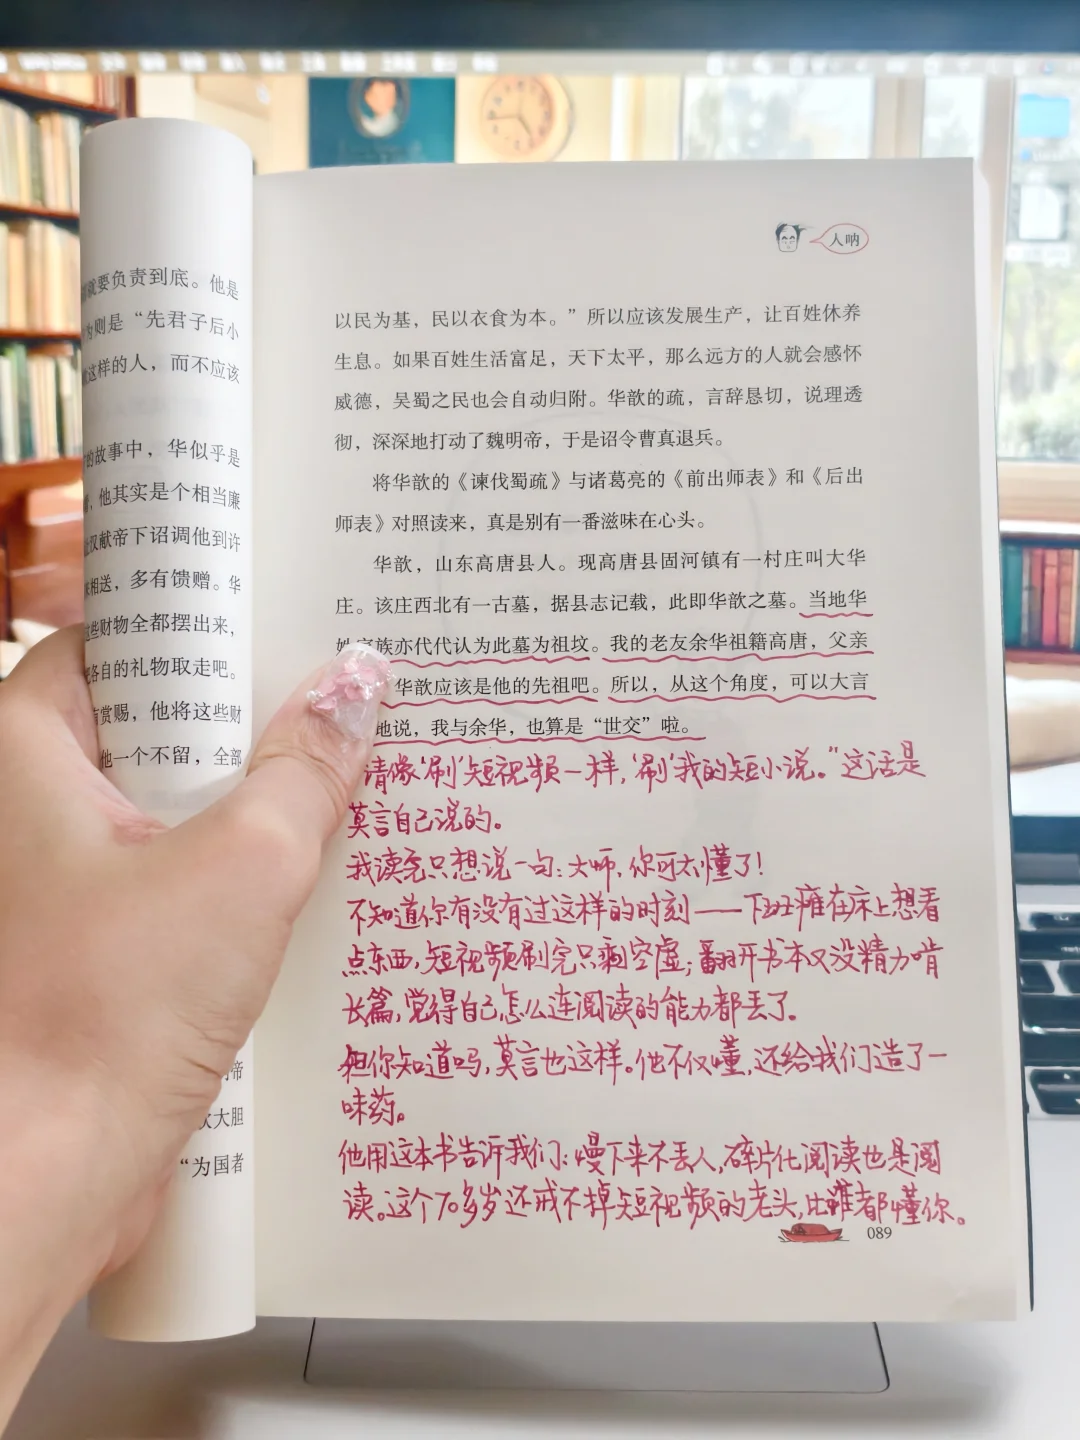 就要负责到底。他是
为则是“先君子后小
这样的人，而不应该
的故事中，华似乎是
他其实是个相当廉
汉献帝下诏调他到许
相送，多有馈赠。华
这些财物全都摆出来，
把各自的礼物取走吧。
有赏赐，他将这些财
他一个不留，全部
帝
次大胆
“为国者
人呐
以民为基，民以衣食为本。”所以应该发展生产，让百姓休养
生息。如果百姓生活富足，天下太平，那么远方的人就会感怀
威德，吴蜀之民也会自动归附。华歆的疏，言辞恳切，说理透
彻，深深地打动了魏明帝，于是诏令曹真退兵。
将华歆的《谏伐蜀疏》与诸葛亮的《前出师表》和《后出
师表》对照读来，真是别有一番滋味在心头。
华歆，山东高唐县人。现高唐县固河镇有一村庄叫大华
庄。该庄西北有一古墓，据县志记载，此即华歆之墓。当地华
姓家族亦代代认为此墓为祖坟。我的老友余华祖籍高唐，父亲
华歆应该是他的先祖吧。所以，从这个角度，可以大言
地说，我与余华，也算是“世交”啦。
请像‘刷’短视频一样，‘刷’我的短小说。”这话是
莫言自己说的。
我读完只想说一句：大师，你可太懂了！
不知道你有没有过这样的时刻——下班瘫在床上想看
点东西，短视频刷完只剩空虚；翻开书本又没精力啃
长篇，觉得自己怎么连阅读的能力都丢了。
但你知道吗，莫言也这样。他不仅懂，还给我们造了一
味药。
他用这本书告诉我们：慢下来不丢人，碎片化阅读也是阅
读。这个70多岁还戒不掉短视频的老头，比谁都懂你。
089